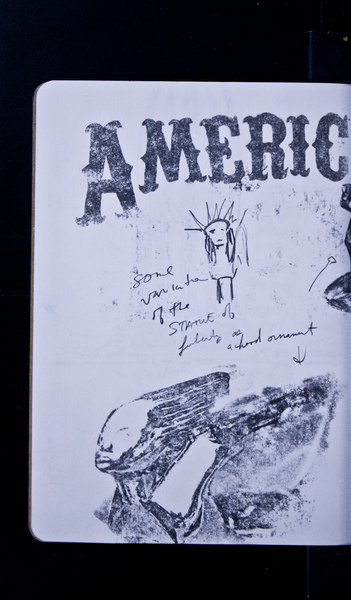 AMERIC
some
variation
of the
STATUE of
Liberty as
a hood ornament